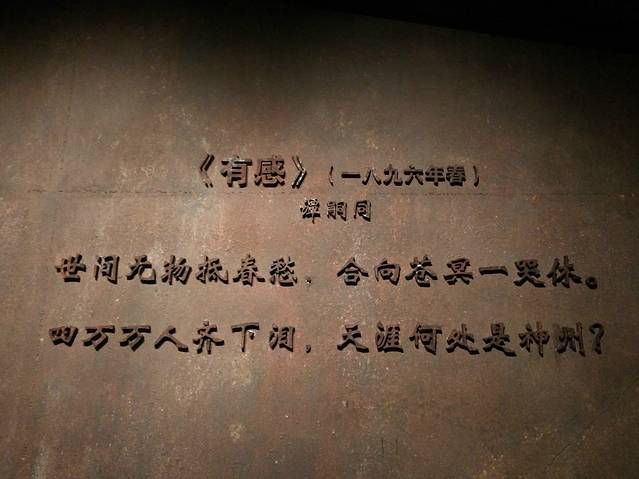 《有感》（一八九六年春）
谭嗣同
世间无物抵春愁，合向苍冥一哭休。
四万万人齐下泪，天涯何处是神洲？